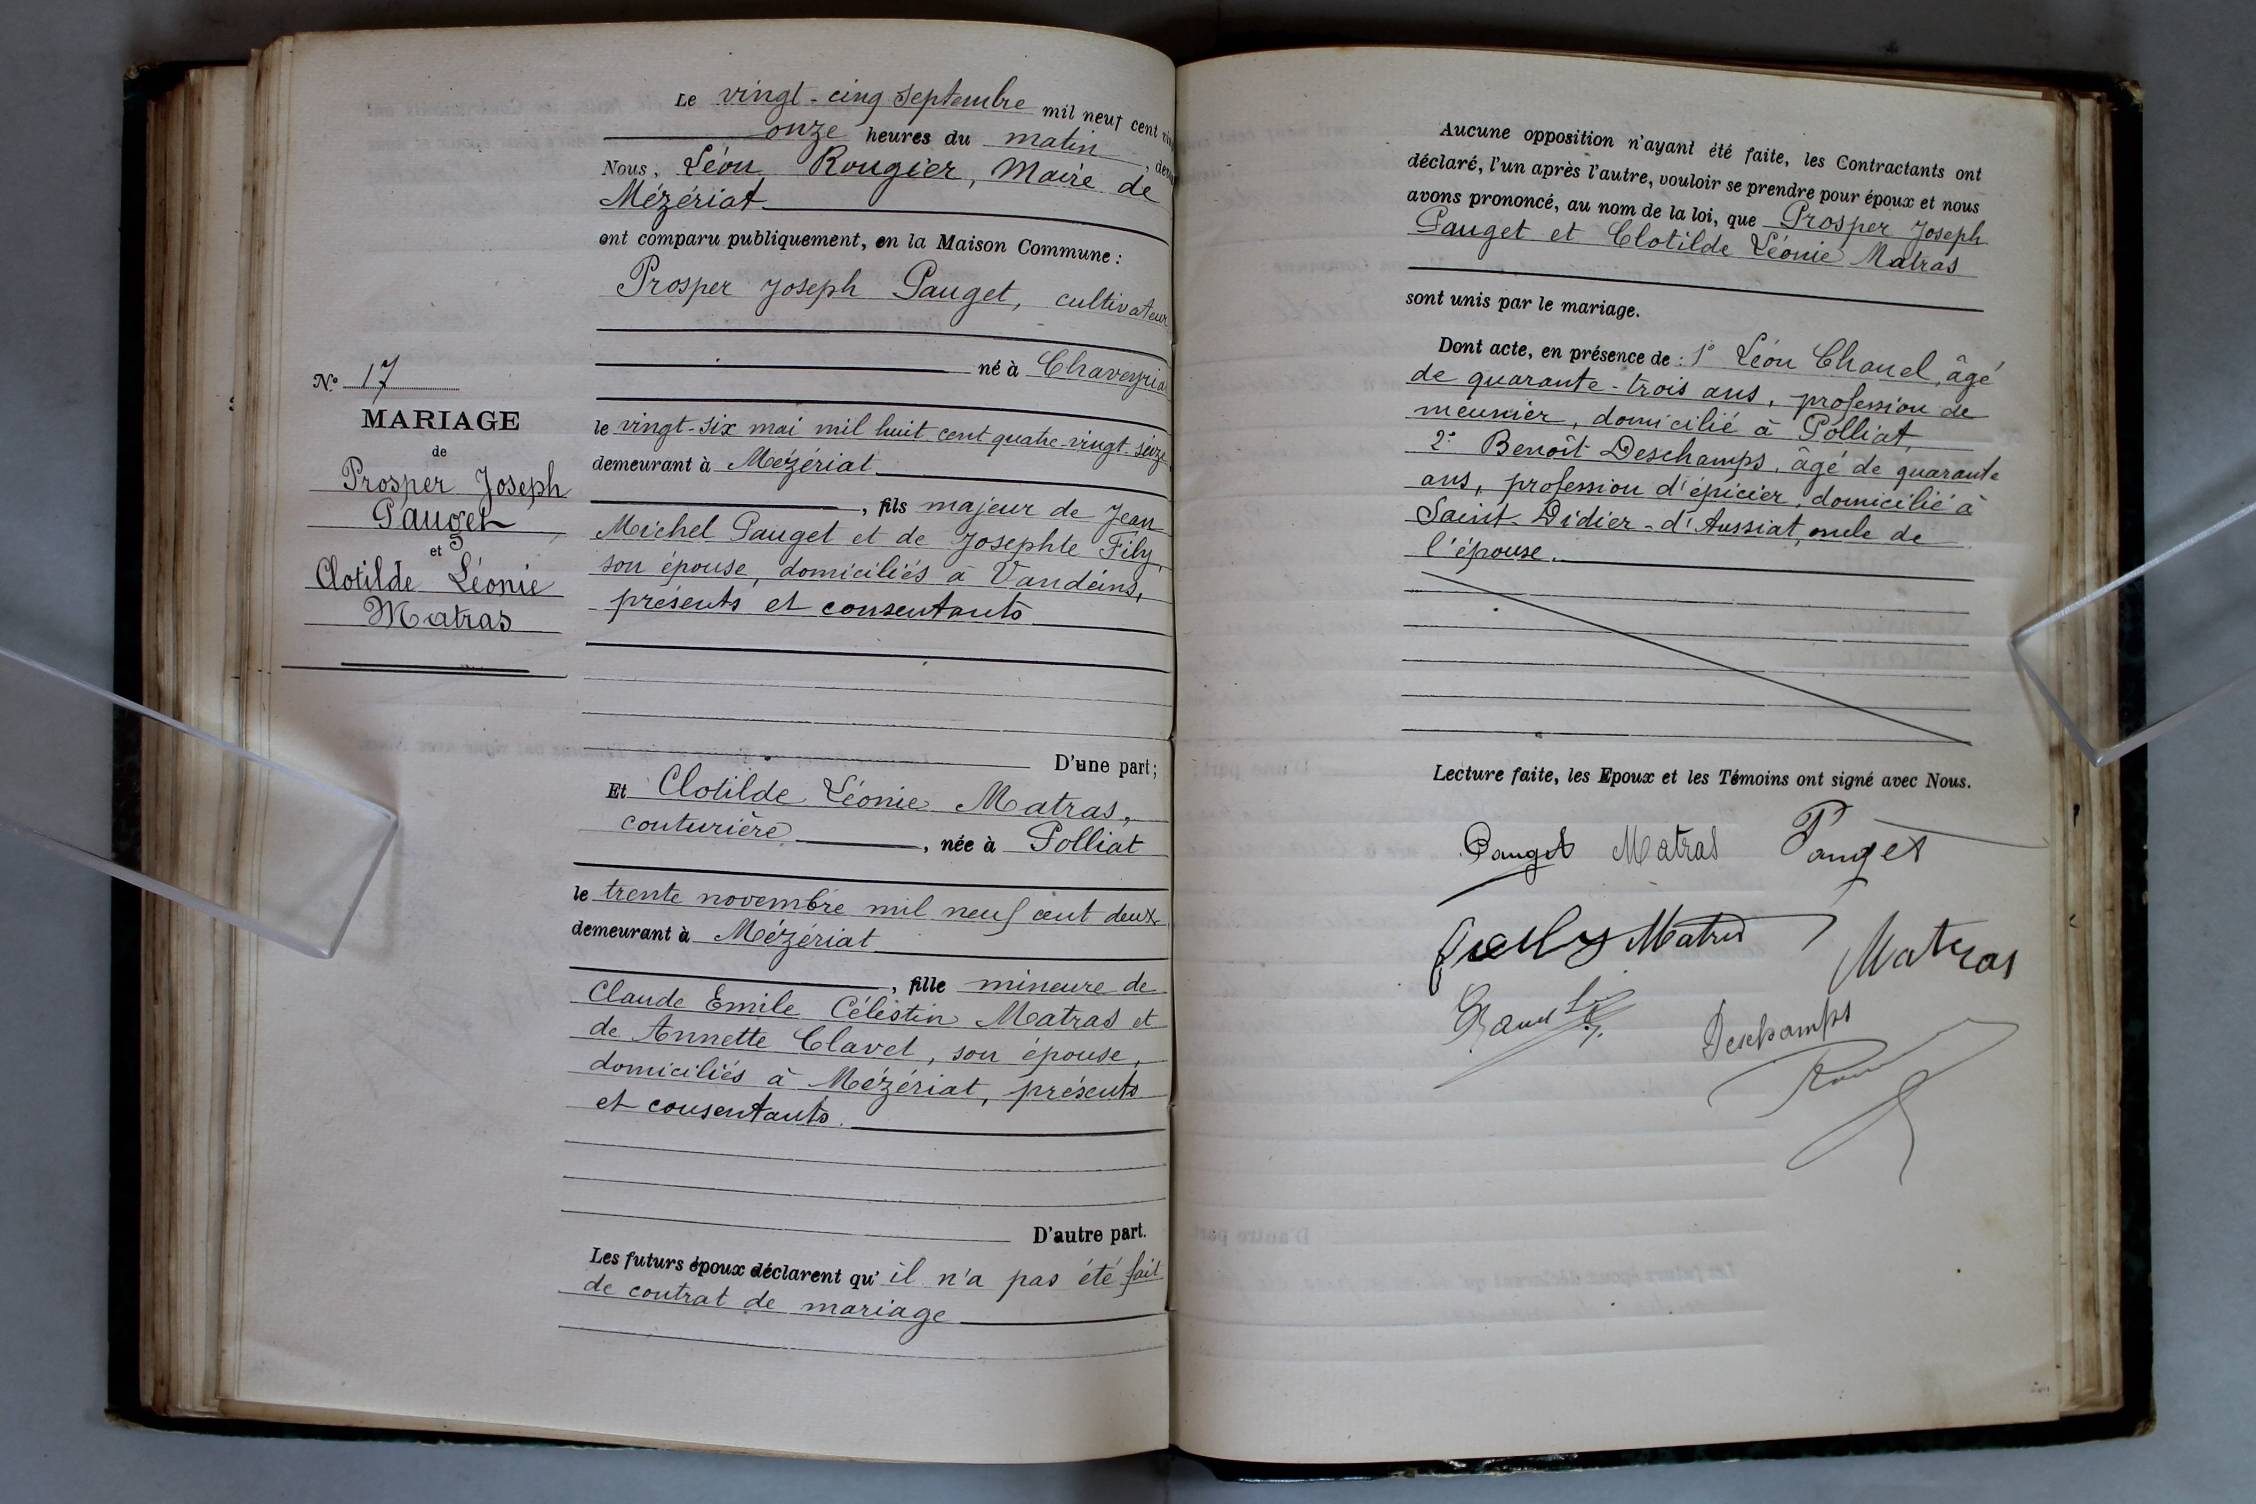 Le vingt-cinq septembre mil neuf cent
onze heures du matin,
Nous, Léon Rougier, Maire de
Mézériat
ont comparu publiquement, en la Maison Commune :
Prosper Joseph Pauget, cultivateur
né à Chaveyria
N° 17
MARIAGE
de
Prosper Joseph
Pauget
et
Clotilde Léonie
Matras
le vingt-six mai mil huit cent quatre-vingt-seize
demeurant à Mézériat
, fils majeur de Jean
Michel Pauget et de Josephte Fily,
son épouse, domiciliés à Vandeins,
présents et consentants
D'une part;
Et Clotilde Léonie Matras,
couturière, née à Polliat
le trente novembre mil neuf cent deux
demeurant à Mézériat
, fille mineure de
Claude Emile Célestin Matras et
de Annette Clavel, son épouse,
domiciliés à Mézériat, présents
et consentants.
D'autre part.
Les futurs époux déclarent qu'il n'a pas été fait
de contrat de mariage
Aucune opposition n'ayant été faite, les Contractants ont
déclaré, l'un après l'autre, vouloir se prendre pour époux et nous
avons prononcé, au nom de la loi, que Prosper Joseph
Pauget et Clotilde Léonie Matras
sont unis par le mariage.
Dont acte, en présence de : 1° Léon Chanel, âgé
de quarante-trois ans, profession de
meunier, domicilié à Polliat
2° Benoît Deschamps, âgé de quarante
ans, profession d'épicier, domicilié à
Saint-Didier-d'Aussiat, oncle de
l'épouse.
Lecture faite, les Epoux et les Témoins ont signé avec Nous.
Pauget Matras Pauget
Matras
Matras
Deschamps